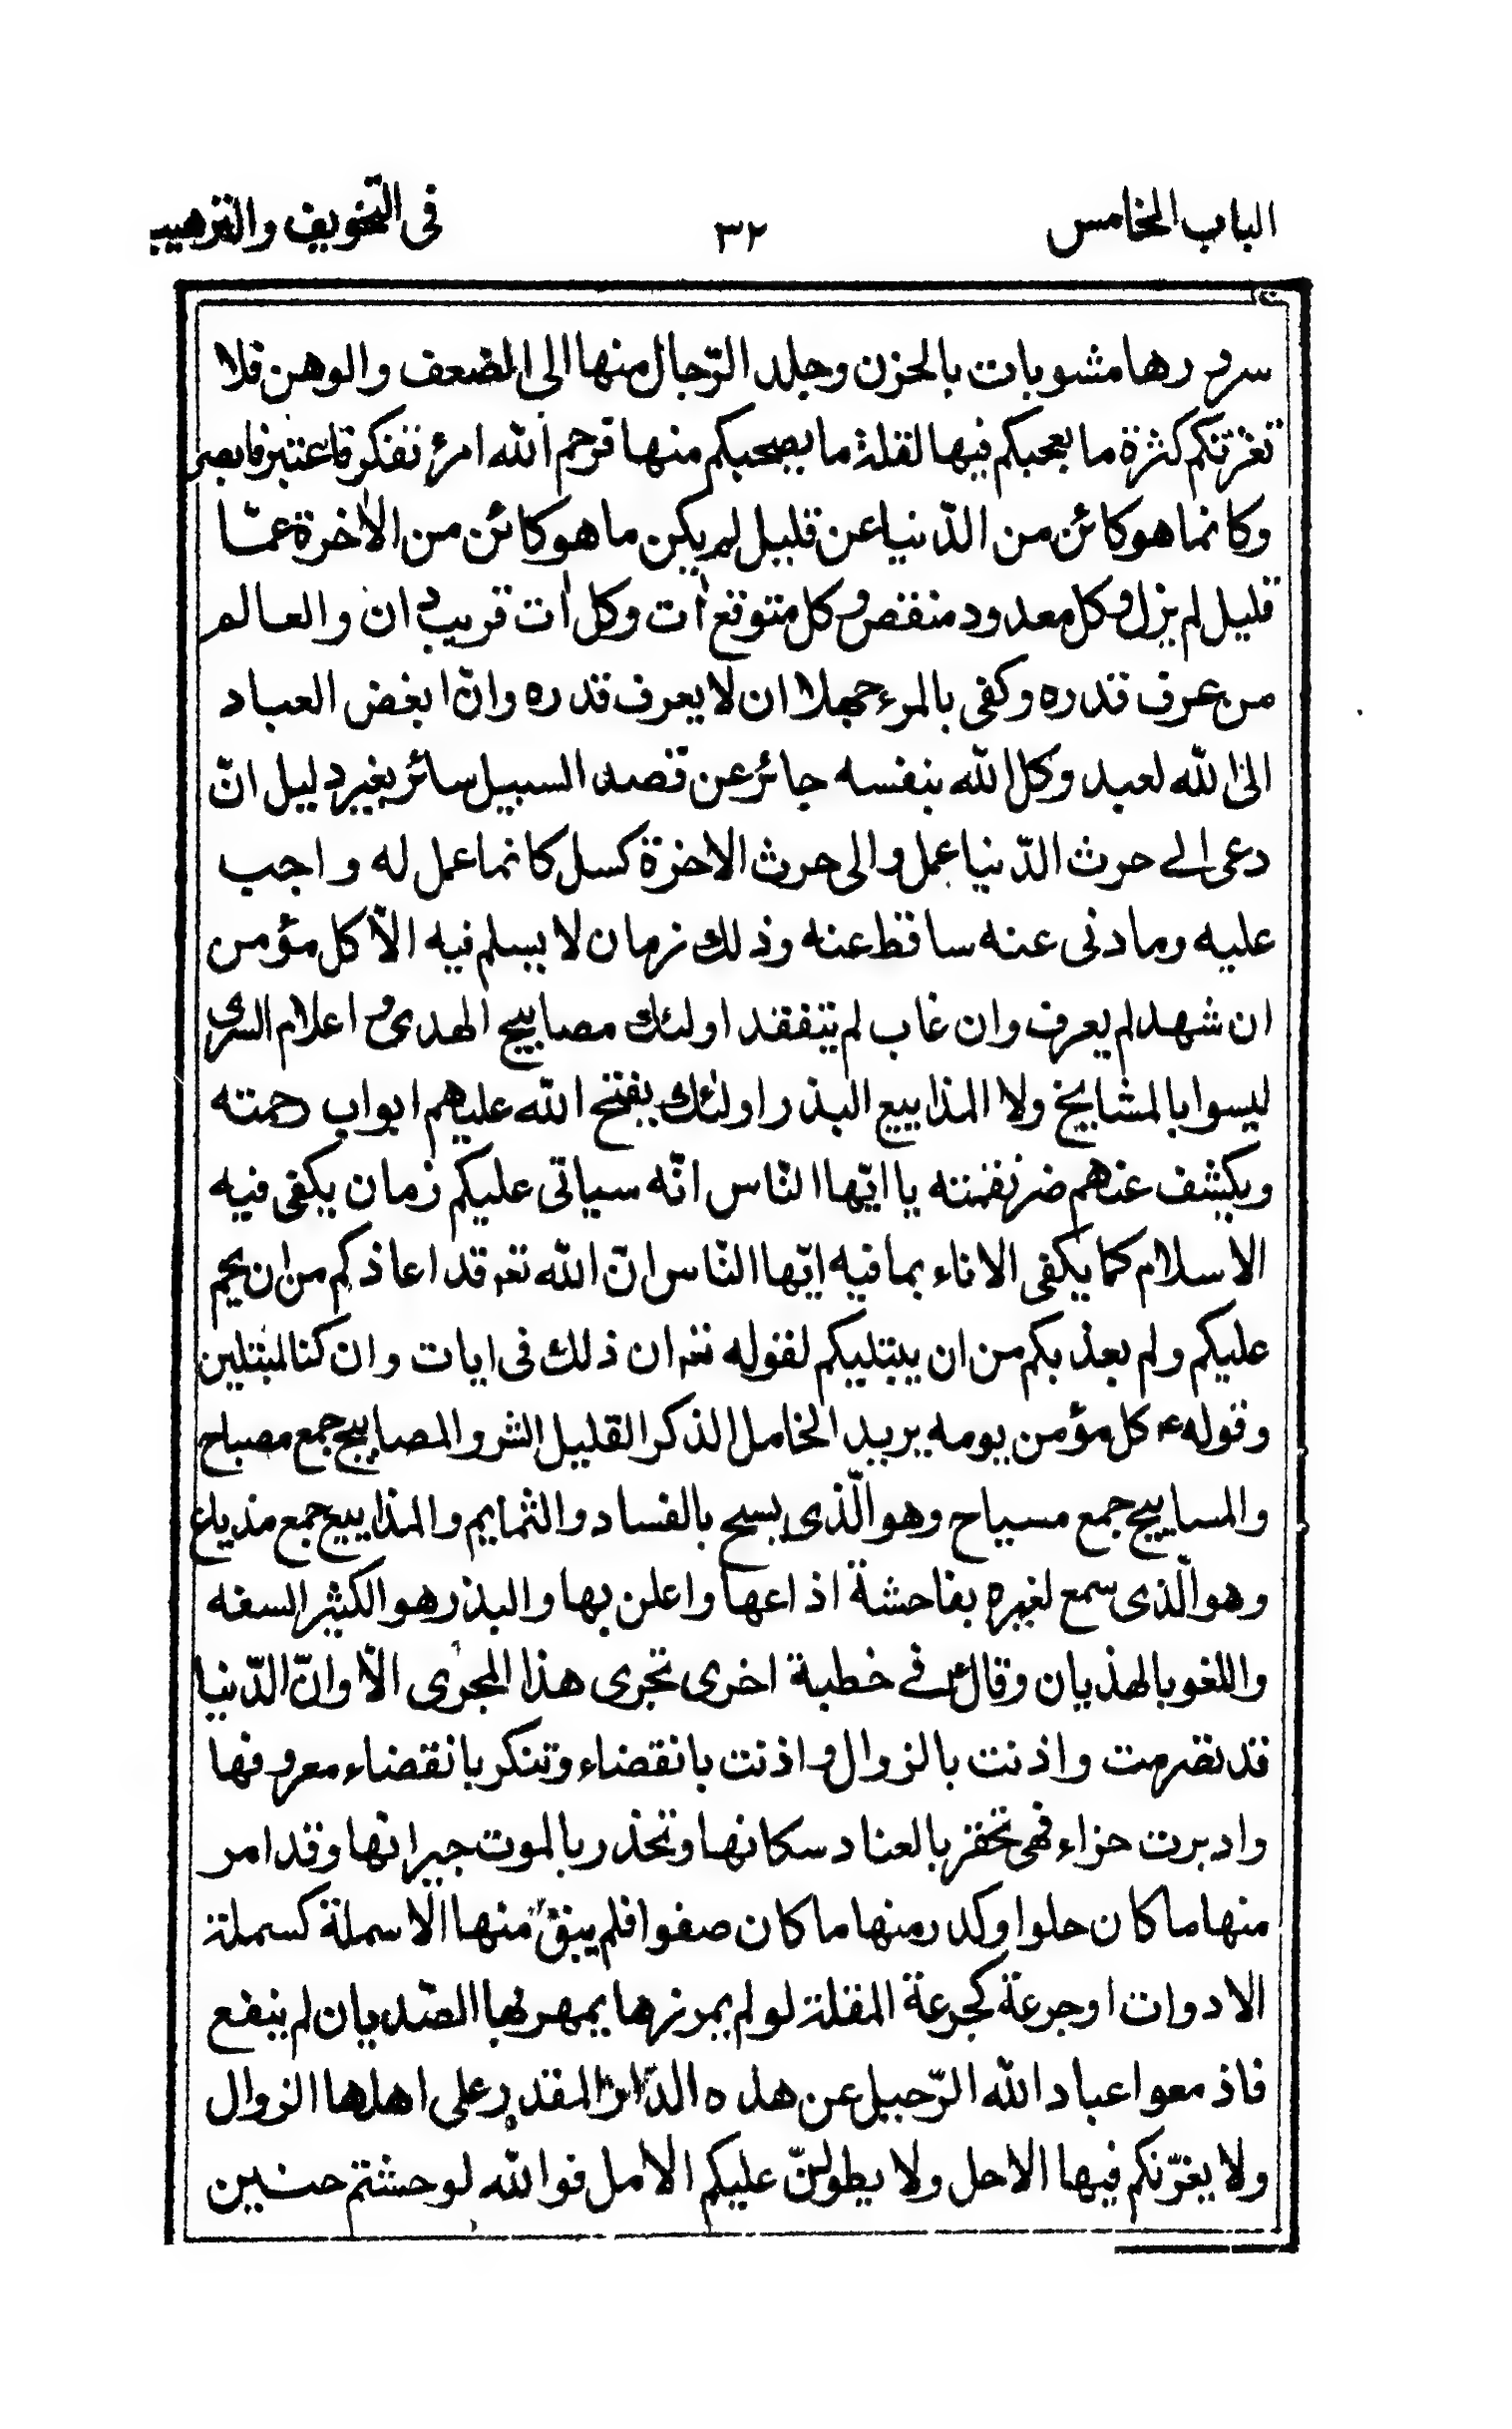 الباب الخامس ٣٢ فى التخويف والترهيب
سرورها مشوبات بالحزن وجلد الرّجال منها الى الضعف والوهن فلا
تغرّنكم كثرة ما يعجبكم فيها لقلة ما يصحبكم منها فرحم الله امرئ تفكر فاعتبر فابصر
وكانما هو كائن من الدّنيا عن قليل لم يكن ما هو كائن من الاخرة عمّا
قليل لم يزل وكل معدود منقص وكل متوقع ات وكل ات قريب دان والعالم
من عرف قدره وكفى بالمرء جهلا ان لا يعرف قدره وانّ ابغض العباد
الى الله لعبد وكل الله بنفسه جائر عن قصد السبيل سائر بغير دليل انّ
دعى الى حرث الدّنيا عمل والى حرث الاخرة كسل كانما عمل له واجب
عليه وما دنى عنه ساقط عنه وذلك زمان لا يسلم فيه الّا كل مؤمن
ان شهد لم يعرف وان غاب لم يتفقد اولئك مصابيح الهدى و اعلام السرى
ليسوا بالمشاييخ ولا المذاييع البذر اولئك يفتح الله عليهم ابواب رحمته
ويكشف عنهم ضر نقمته يا ايّها النّاس انّه سياتى عليكم زمان يكفى فيه
الاسلام كما يكفى الاناء بما فيه ايّها النّاس انّ الله تعه قد اعاذكم من ان يحم
عليكم ولم يعذبكم من ان يبتليكم لقوله تعه ان ذلك فى ايات وان كنا لمبتلين
وقوله ع كل مؤمن يومه يريد الخامل الذكر القليل الشر والمصابيح جمع مصباح
والمساييح جمع مسياح وهو الّذى يسيح بالفساد والتمايم والمذاييع جمع مذياع
وهو الّذى سمع لغيره بفاحشة اذاعها واعلن بها والبذر هو الكثير السفه
واللغو بالهذيان وقال ع فى خطبة اخرى تجرى هذا المجرى الا وانّ الدّنيا
قد تصرمت واذنت بالزوال واذنت بانقضاء وتنكر بانقضاء معروفها
وادبرت حزاء فهى تحفز بالعناد سكانها وتحذر بالموت جيرانها وقد امر
منها ما كان حلوا وكدر منها ما كان صفوا فلم يبق منها الا سملة كسملة
الادوات او جرعة كجرعة المقلة لو لم يمرزها يمهر لها الصّديان لم ينفع
فاذمعوا عباد الله الرّحيل عن هذه الدّار المقدر على اهلها الزوال
ولا يغرّنكم فيها الاحل ولا يطولنّ عليكم الامل فوالله لو حشتم حنين